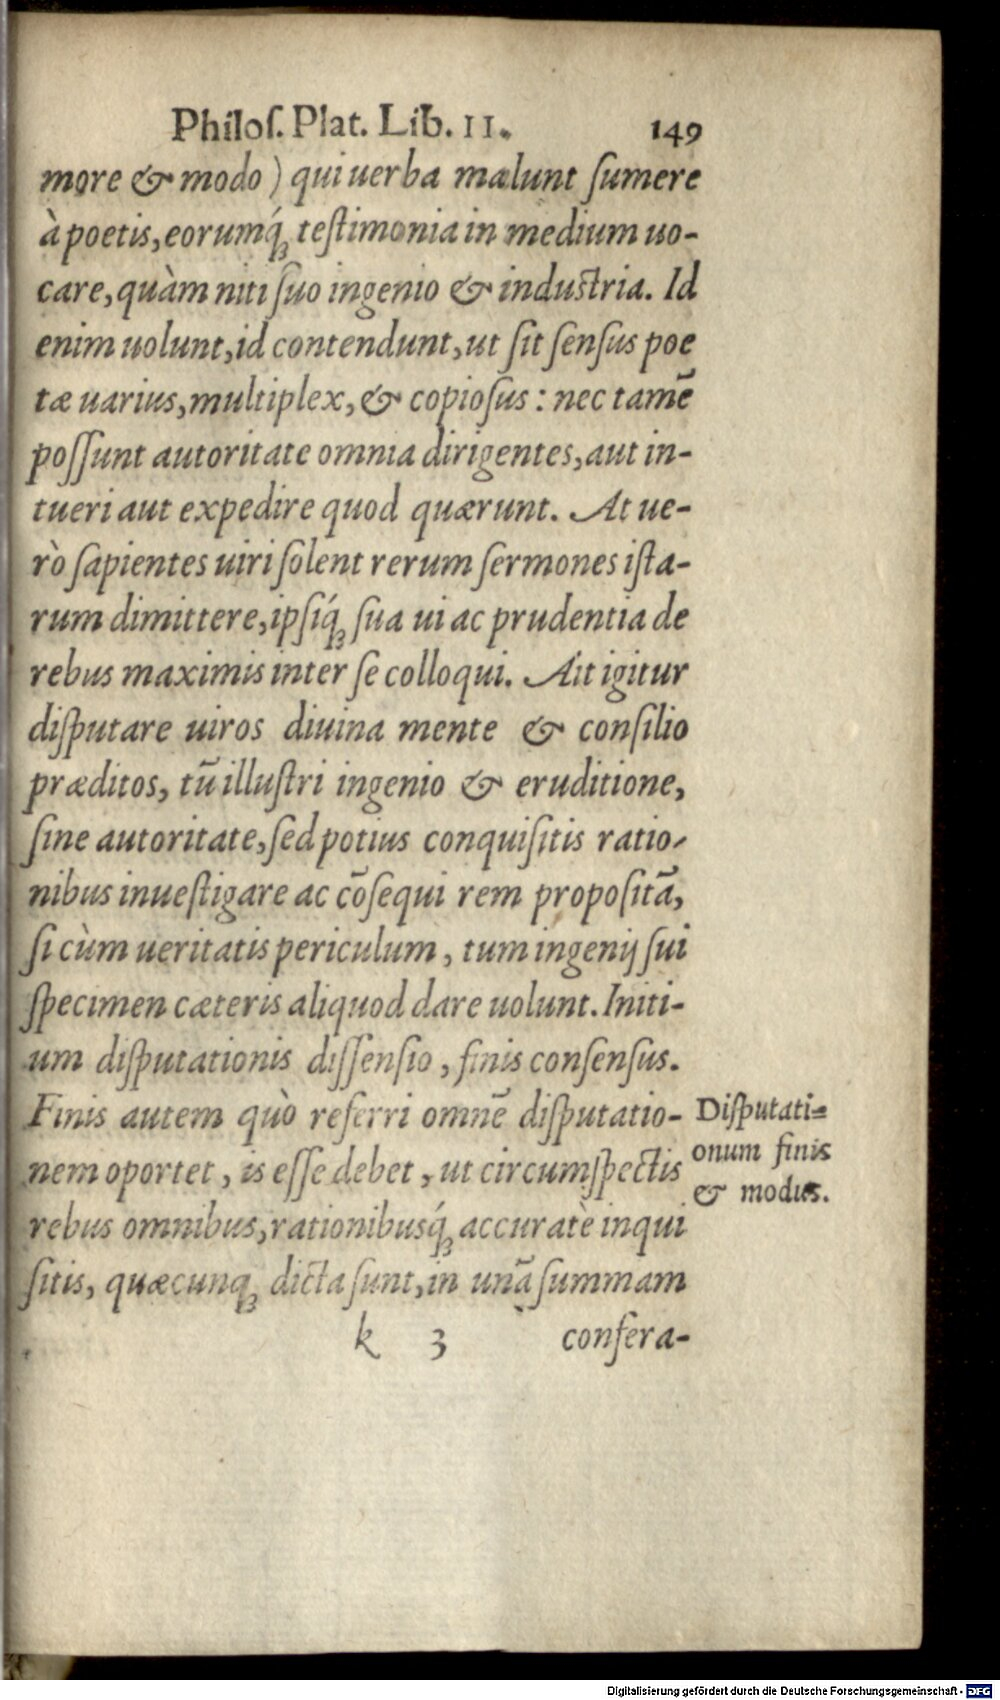 Philoſ. Plat. Lib. II. 149
more & modo) qui uerba malunt ſumere
à poetis, eorumq́; teſtimonia in medium uo-
care, quàm niti ſuo ingenio & induſtria. Id
enim uolunt, id contendunt, ut ſit ſenſus poe
tæ uarius, multiplex, & copioſus: nec tamē
poſſunt autoritate omnia dirigentes, aut in-
tueri aut expedire quod quærunt. At ue-
rò ſapientes uiri ſolent rerum ſermones iſta-
rum dimittere, ipſiq́; ſua ui ac prudentia de
rebus maximis inter ſe colloqui. Ait igitur
diſputare uiros diuina mente & conſilio
præditos, tū illuſtri ingenio & eruditione,
ſine autoritate, ſed potius conquiſitis ratio-
nibus inueſtigare ac cōſequi rem propoſitā,
ſi cùm ueritatis periculum, tum ingenij ſui
ſpecimen cæteris aliquod dare uolunt. Initi-
um diſputationis diſſenſio, finis conſenſus.
Finis autem quò referri omnē diſputatio-
nem oportet, is eſſe debet, ut circumſpectis
rebus omnibus, rationibusq́; accuratè inqui
ſitis, quæcunq; dicta ſunt, in unā ſummam
k 3 confera-
Diſputati=
onum finis
& modus.
Digitalisierung gefördert durch die Deutsche Forschungsgemeinschaft - DFG